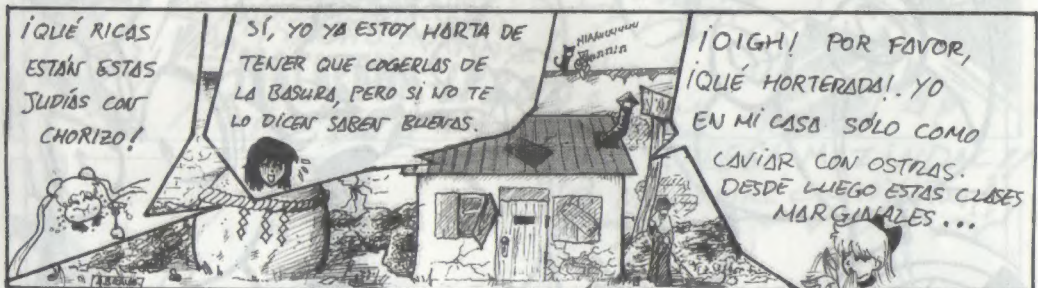 ¡QUÉ RICAS
ESTÁN ESTAS
JUDÍAS CON
CHORIZO!
SÍ, YO YA ESTOY HARTA DE
TENER QUE COGERLAS DE
LA BASURA, PERO SI NO TE
LO DICEN SABEN BUENAS.
¡OIGH! POR FAVOR,
¡QUÉ HORTERADA!. YO
EN MI CASA SÓLO COMO
CAVIAR CON OSTRAS.
DESDE LUEGO ESTAS CLASES
MARGINALES...